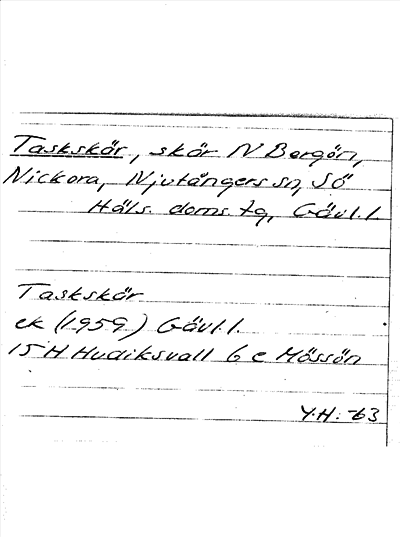 Taskskär, skär N Bergön,
Nickora, Njutångers sn, Sö
Häls. doms. tg, Gävl. l
Taskskär
ek (1959) Gävl. l.
15 H Hudiksvall 6 c Mössön
Y.H: -63